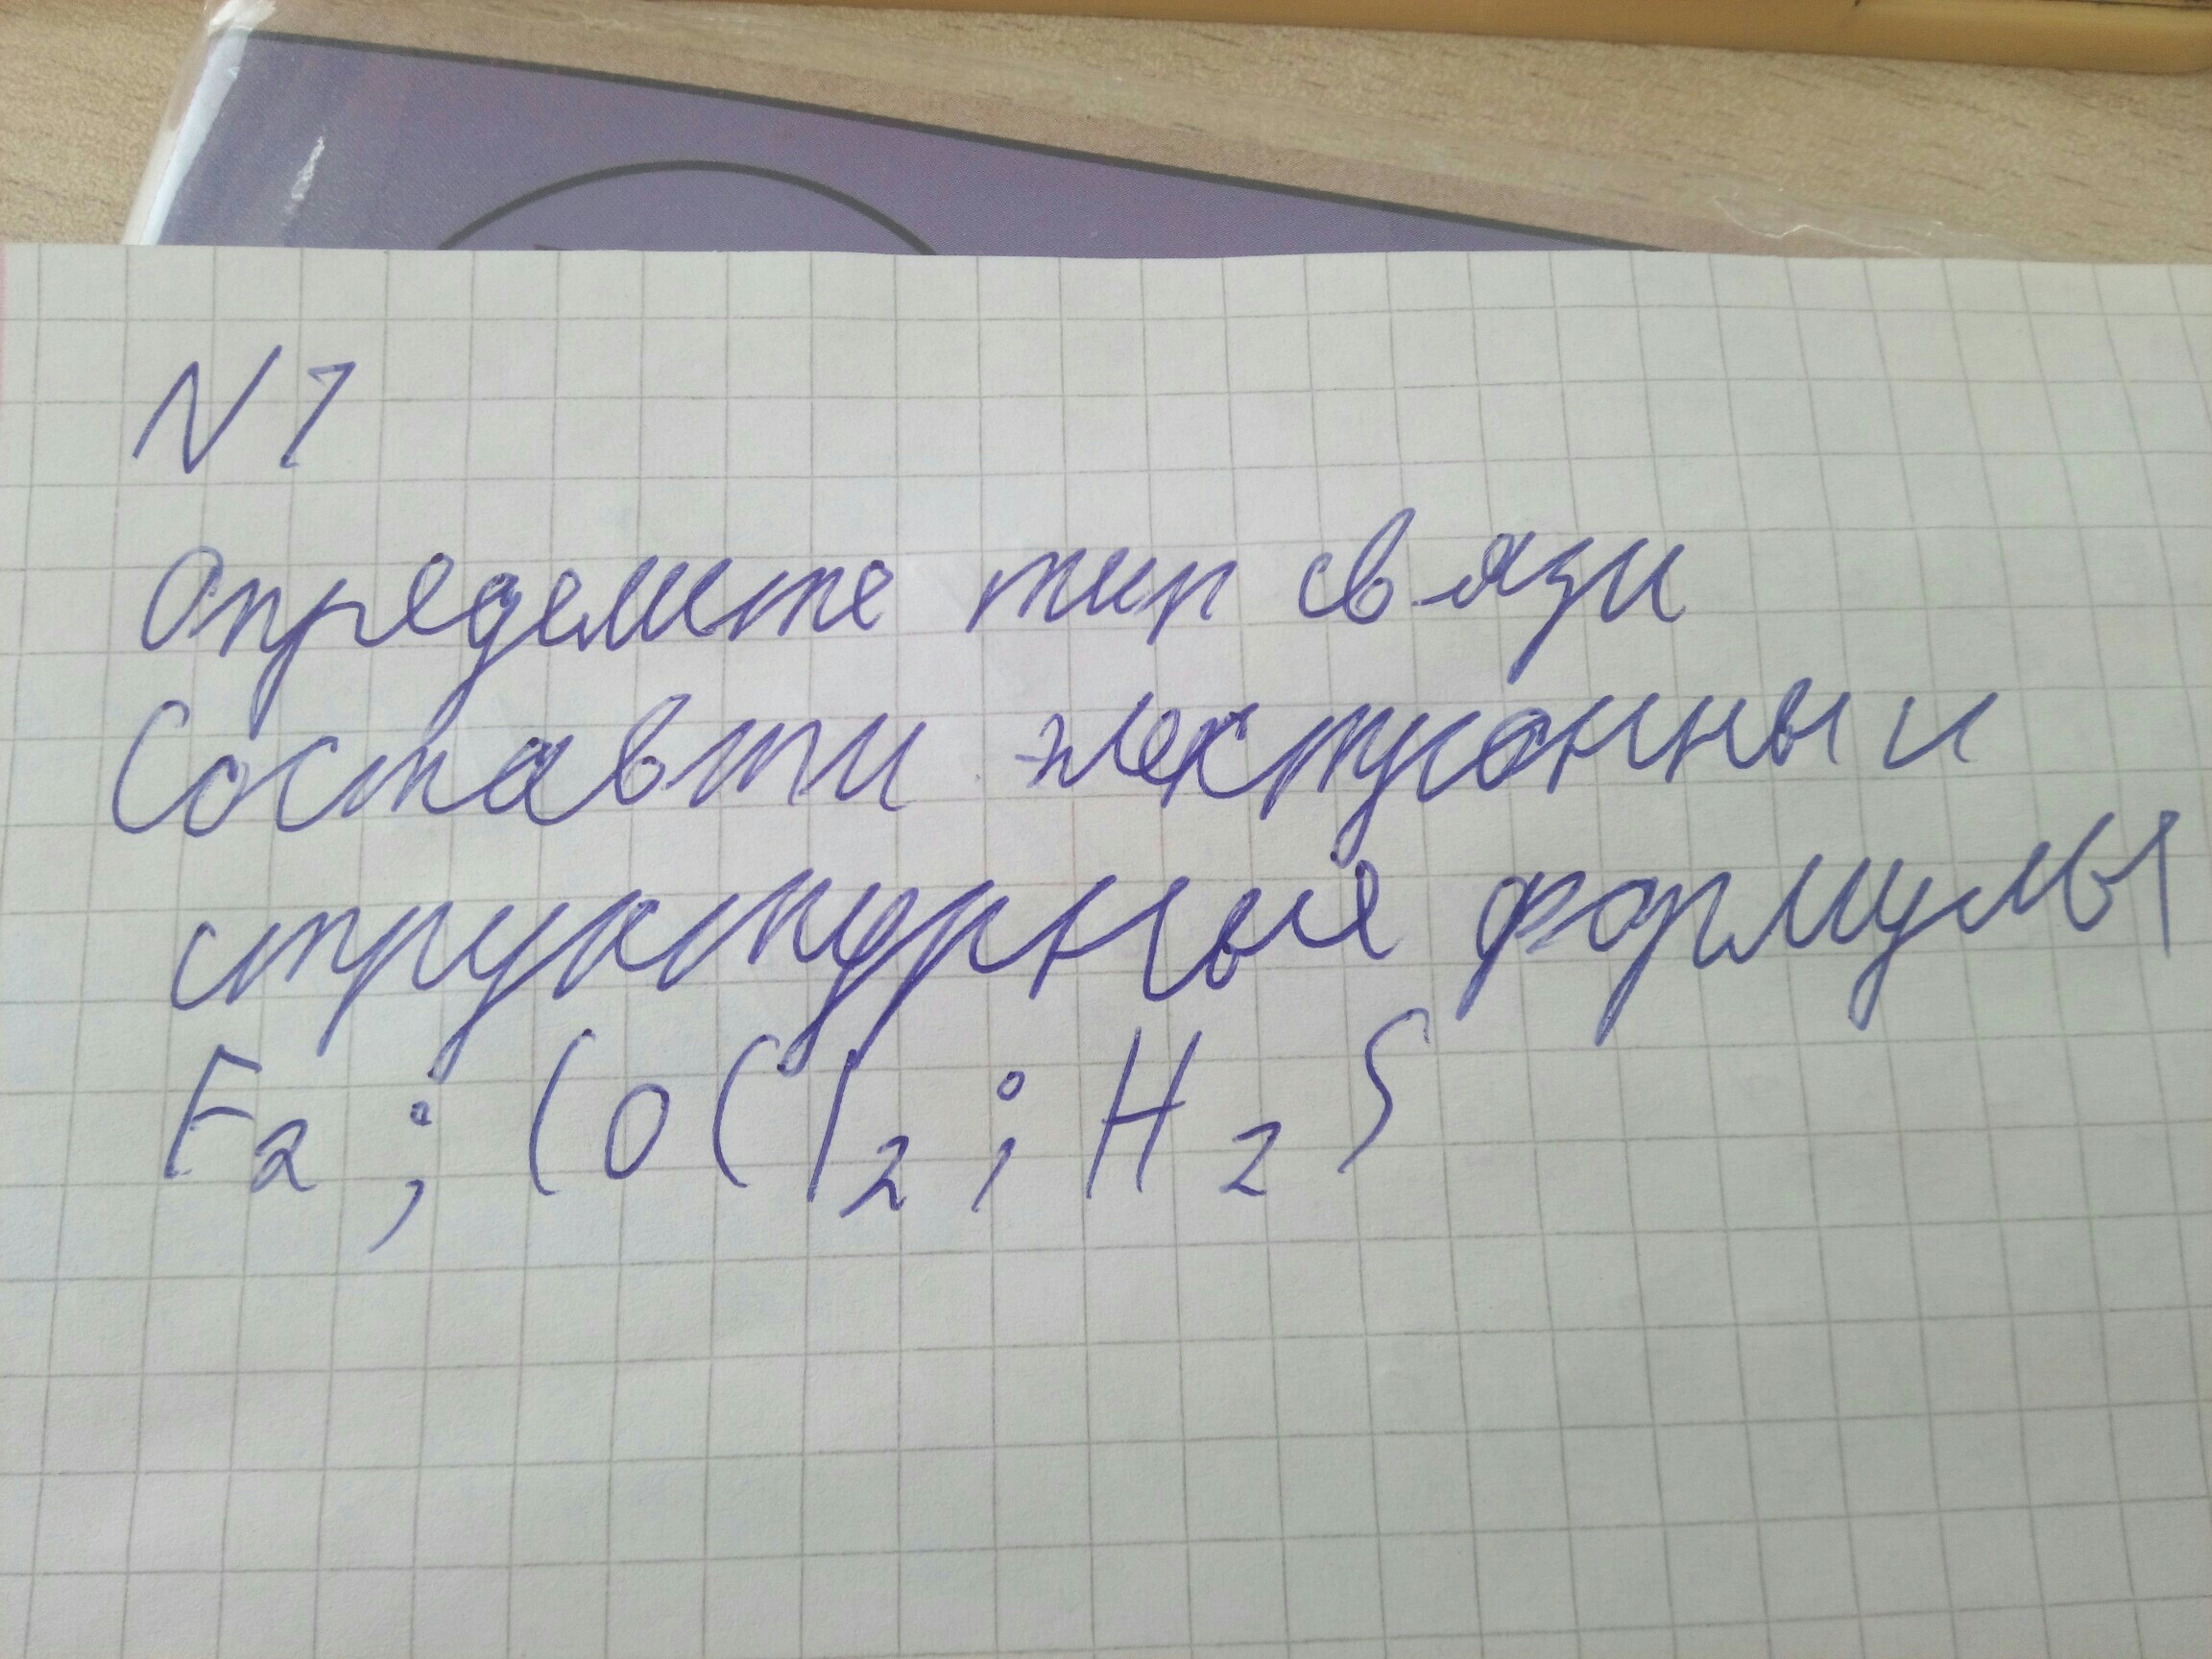 N 1
Определите тип связи
Составти электронны и
структурные формулы
F2 ; COCl2 ; H2S